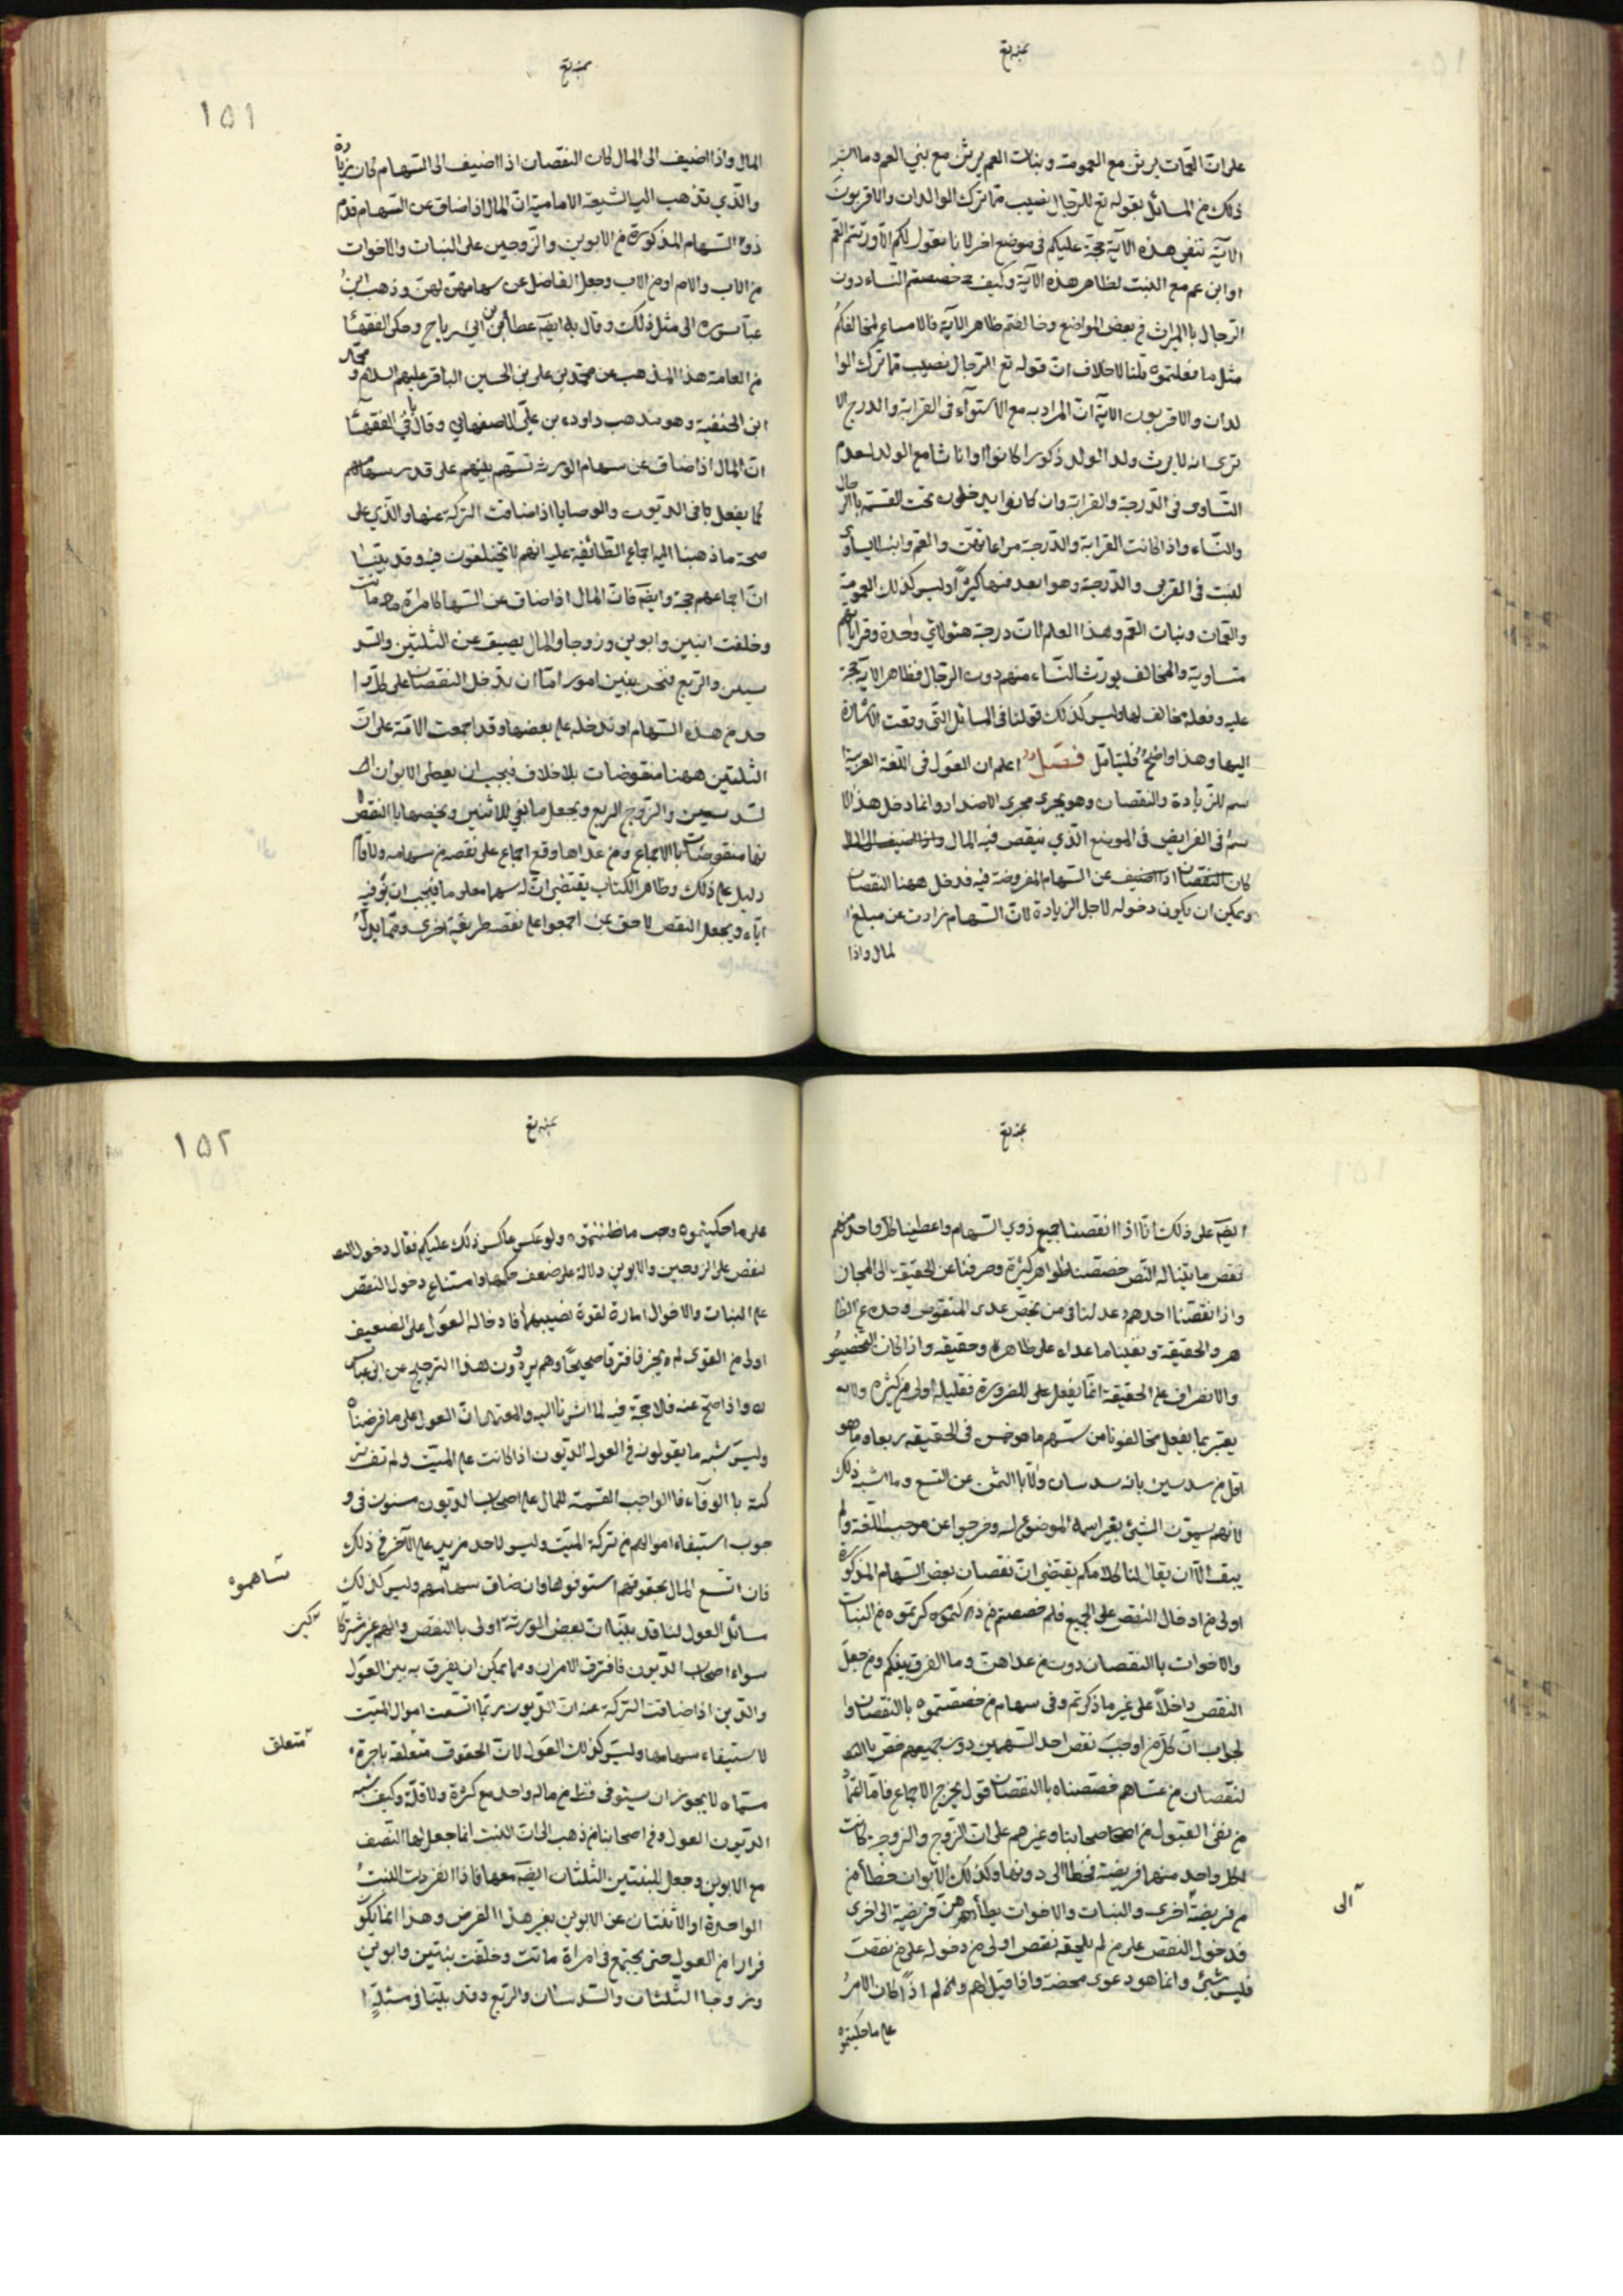 بمنه تع
على ان العمات يرثن مع العمومة وبنات العم يرثن مع بني العم وما اشبه
ذلك من المسائل بقوله تع للرجال نصيب مما ترك الوالدان والاقربون
الآية تنفي هذه الآية حجة عليكم في موضع اخر لانا نقول لكم الا ورثتم العم
او ابن عم مع البنت لظاهر هذه الآية وكيف خصصتم النساء دون
الرجال باالميراث في بعض المواضع وخالفتم ظاهر الآية فالا ساع لمخالفكم
مثل ما فعلتموه قلنا لا خلاف ان قوله تع الرجال نصيب مما ترك الوا
لدان والاقربون الآية ان المراد به مع الاستواء في القرابة والدرج الا
ترى انه لا يرث ولد الولد ذكورا كانوا او اناثا مع الولد لعدم
التساوى في الدرجة والقرابة وان كانوا يدخلون تحت القسمة باالرجال
والنساء واذا كانت القرابة والدرجة مراعاتين والعم وابنه لا يساوى
لبنت في القربى والدرجة وهو ابعد منها كثيرا وليس كذلك العمومة
والعمات وبنات العم وهذا العلم لان درجة هئولاء واحدة وقراباتهم
متساوية والمخالف يورث النساء منهم دون الرجال فظاهر الآية حجة
عليه وفعله مخالف لها وليس كذلك قولنا في المسائل التي وقعت الاشارة
اليها وهذا واضح فليتأمل فصل اعلم ان العول في اللغة العربية ا
سم للزيادة والنقصان وهو يجرى مجرى الاضداد وانما دخل هذا الا
سم في الفرايض في الموضع الذي ينقص فيه المال واذا اضيف الى المال
كان النقصان اذا اضيف عن السهام المفروضة فيه فدخل ههنا النقصان
ويمكن ان يكون دخوله لاجل الزيادة لان السهام زادت عن مبلغ ا
لمال واذا
بمنه تع
١٥١
المال واذا اضيف الى المال كان النقصان اذا اضيف الى السهام كان زيادة
والذي تذهب اليه الشيعة الامامية ان المال اذا ضاق عن السهام قدم
ذوو السهام المذكورة من الابوين والزوجين على البنات والاخوات
من الاب والام او من الاب وجعل الفاضل عن سهامهن لهن وذهب ابن
عباس ره الى مثل ذلك وقال به ايضا عطاء بن ابي رباح وحكى الفقهاء
من العامة هذا المذهب عن محمد بن على بن الحسين الباقر عليهم السلام ومحمد
ابن الحنفية وهو مذهب داود بن علي الاصفهاني وقال باقي الفقهاء
ان المال اذا ضاق عن سهام الورثة قسم بينهم على قدر سهامهم
كما يفعل باقي الديون والوصايا اذا ضاقت التركة عنها والذي على
صحة ما ذهبنا اليه اجماع الطائفة عليه انهم لا يختلفون فيه وقد بينا
ان اجماعهم حجة وايضا فان المال اذا ضاق عن السهام كامراة ماتت
وخلفت ابنتين وابوين وزوجا والمال يضيق عن الثلثين والسد
سين والربع فنحن بين امور اما ان ندخل النقصان على كل وا
حد من هذه السهام او ندخله على بعضها وقد اجمعت الامة على ان
الثلثين ههنا منقوضات بلا خلاف فيجب ان يعطى الابوان ا
لسدسين والزوج الربع ويجعل ما بقي للاثنين ويخصها باالنقص
نها منقوضتان باالاجماع ومن عداها وقع اجماع على نقصه من سهامه ولا قام
دليل على ذلك وظاهر الكتاب يقتضي ان له سهما معلوما فيجب ان نوفيه
اياه ويجعل النقص لاحق بمن اجمعوا على نقصه طريقة اخرى ومما يدل
بمنه تع
ايضا على ذلك انا اذا انقصنا جميع ذوي السهام واعطينا كل واحد منهم
نقص ما يتناله النص خصصنا ظواهر كثيرة وصرفنا عن الحقيقة الى المجاز
واذا نقصنا احدهم عدلنا في من يخص عدى المنقوص وحده عن الظا
هر والحقيقة وبقينا ما عداه على ظاهره وحقيقه واذا كان التخصيص
والانصراف على الحقيقة انما يفعل على للضرورة فقليله اولى من كثيره ولا
يعتبر بما يفعل مخالفونا من سهم ما هو خمس في الحقيقة ربعا وما هو
اقل من سدسين بانه سدسان ولا باالثمن عن التسع وما اشبه ذلك
لانهم يسمون الشيئ بغير اسمه الموضوع له وخرجوا عن موجب اللغة ولم
يبق الا ان يقال لنا كلامكم يقتضي ان نقصان بعض السهام المذكورة
اولى من ادخال النقص على الجميع فلم خصصتم من ذكرتموه من البنات
والاخوات باالنقصان دون من عداهن وما الفرق بينكم ومن جعل
النقص داخلا على غير ما ذكرتم وفي سهام من خصصتموه باالنقصان وا
لجواب ان كل من اوجب نقص احد السهمين دون جميعهم خص باالنـ
لنقصان من عيناهم فخصصناه باالنقصان قول يخرج الاجماع فاما
من نفى القبول من اصحابنا وغيرهم على ان الزوج والزوجة كانت
لكل واحد منهما فريضة فخطا الى دونها وكذلك الابوان حطا من
من فريضة اخرى والبنات والاخوات يطأهن من فريضة الى اخرى
فدخول النقص على من لم يلحقه نقص اولى من دخوله على من نقصت
فليس بشيئ وانما هو دعوى محضة واذا قيل لهم ولم اذا كان الامر
على ما حكيتموه
الى
بمنه تع
١٥٢
على ما حكيتموه وجب ما ظننتموه ولو عكس عاكس ذلك عليكم فقال دخول النـ
لنقص على الزوجين والابوين دلالة على ضعف حكمها وامتناع دخول النقص
على البنات والاخوال امارة لقوة نصيبهما فادخاله العول على الضعيف
اولى من القوى لم يجز فافترقا صحيحا وهم يروون هذا الترجيح عن ابن عباس
ره واذا صح عنه فلا حجة فيه لما اشرنا اليه والمعتمد ان العول على ما فرضناه
وليس يشبه ما يقولونه في العول الديون اذا كانت على الميت ولم تف تر
كته باالوفاء فاالواجب القسمة للمال على اصحاب الديون مستوون في و
جوب استيفاء اموالهم من تركة الميت وليس لاحد مزيد على الآخر في ذلك
فان اتسع المال بحقوقهم استوفوها وان ضاق سهامهم وليس كذلك
مسائل العول لنا قد بينا ان بعض الورثة اولى باالنقص وانهم غير شركا
سواء اصحاب الديون فافترق الامران ومما يمكن ان يفرق به بين العول
والدين اذا ضاقت التركة عنه ان الديون ربما اتسعت اموال الميت
لاستيفاء سهامها وليس كذلك العول لان الحقوق متعلقة باجزاء
مسماه لا يجوز ان يستوفى قط من مال واحد مع كثرة ولا قلة وكيف يشبه
الديون العول وفي اصحابنا من ذهب الى ان البنت انما جعل لها النصف
مع الابوين وجعل للبنتين الثلثان ايضا معها فاذا انفردت البنت
الواحدة او الاثنتان عن الابوين بغير هذا الفرض وهذا انما يكون
فرارا من العول حتى يجتمع في امراة ماتت وخلفت بنتين وابوين
وزوجا الثلثان والسدسان والربع وقد بينا في مسئلة ا
تساهموه
كين
متعلق